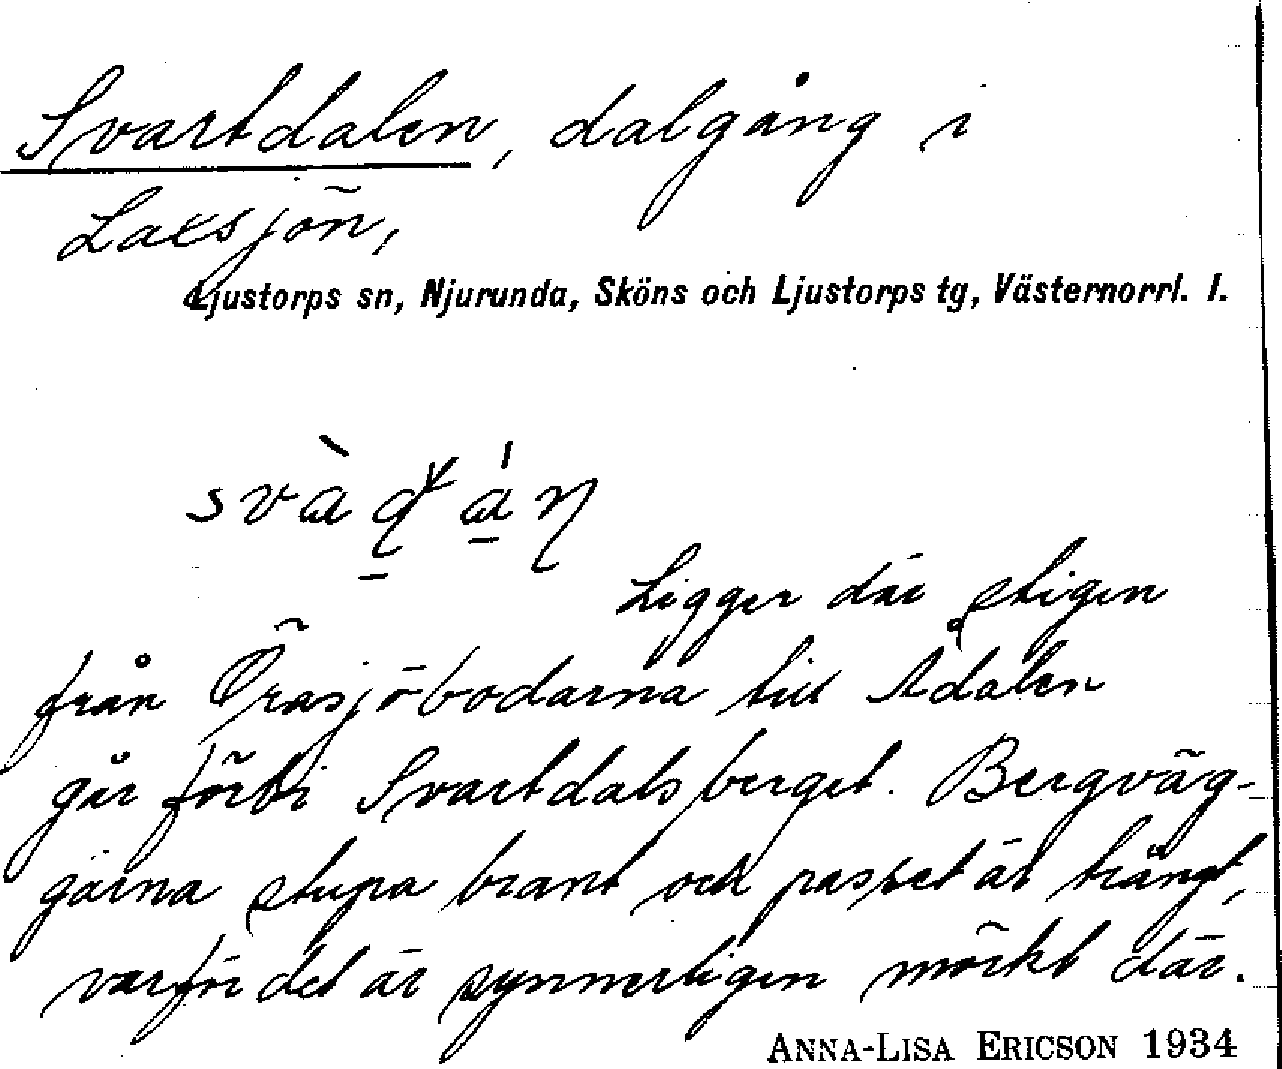 Svartdalen, dalgång i
Laxsjön,
Ljustorps sn, Njurunda, Sköns och Ljustorps tg, Västernorrl. l.
Ligger där stigen
från Örasjöbodarna till Ådalen
går förbi Svartdalsberget. Bergväg-
garna stupa brant och passet är trångt,
varför det är synnerligen mörkt där.
ANNA-LISA ERICSON 1934